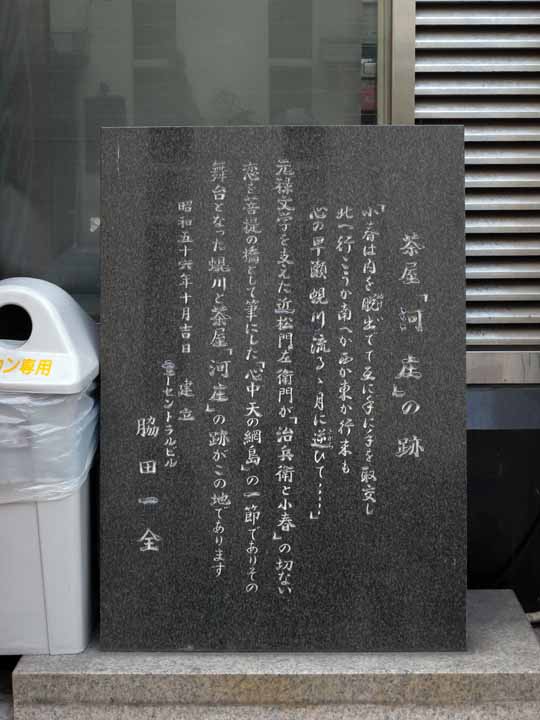 茶屋「河庄」の跡
「小春は内を脱出でて互に手に手を取交し
北へ行こうか南へか西か東か行末も
心の早瀬蜆川流るゝ月に逆ひて……」
元禄文学を支えた近松門左衛門が「治兵衛と小春」の切ない
恋を菩提の橋として筆にした「心中天の網島」の一節でありその
舞台となった蜆川と茶屋「河庄」の跡がこの地であります
昭和五十六年十月吉日 建立
セントラルビル
脇田一全
コン専用